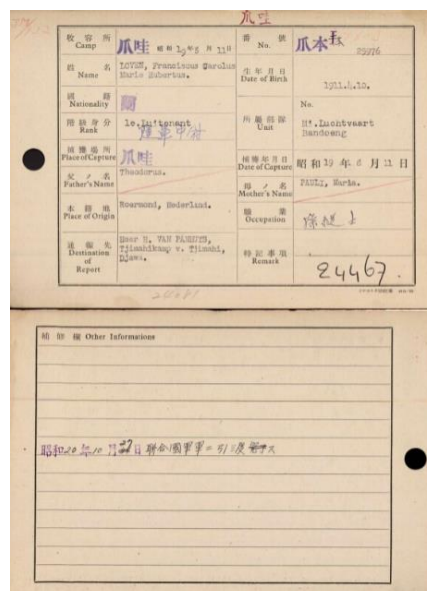 爪哇
收容所 Camp 爪哇 昭和 19年 6月 11日
番號 No. 爪本 25976
姓名 Name LOVEN, Franciscus Carolus Maria Hubertus.
生年月日 Date of Birth 1911.4.10.
國籍 Nationality
階級身分 Rank 1e.Luitenant
所屬部隊 Unit No. Ml.Luchtvaart Bandoeng
捕獲場所 Place of Capture 爪哇
捕獲年月日 Date of Capture 昭和 19年 6月 11日
父ノ名 Father's Name Theodorus.
母ノ名 Mother's Name PAULY, Maria.
本籍地 Place of Origin Roermond, Nederland.
職業 Occupation
通報先 Destination of Report
Tjimahikamp v. Tjimahi, Djawa.
特記事項 Remark 24467.
補修欄 Other Informations
昭和20年10月27日 聯合國軍 = 引渡 ス